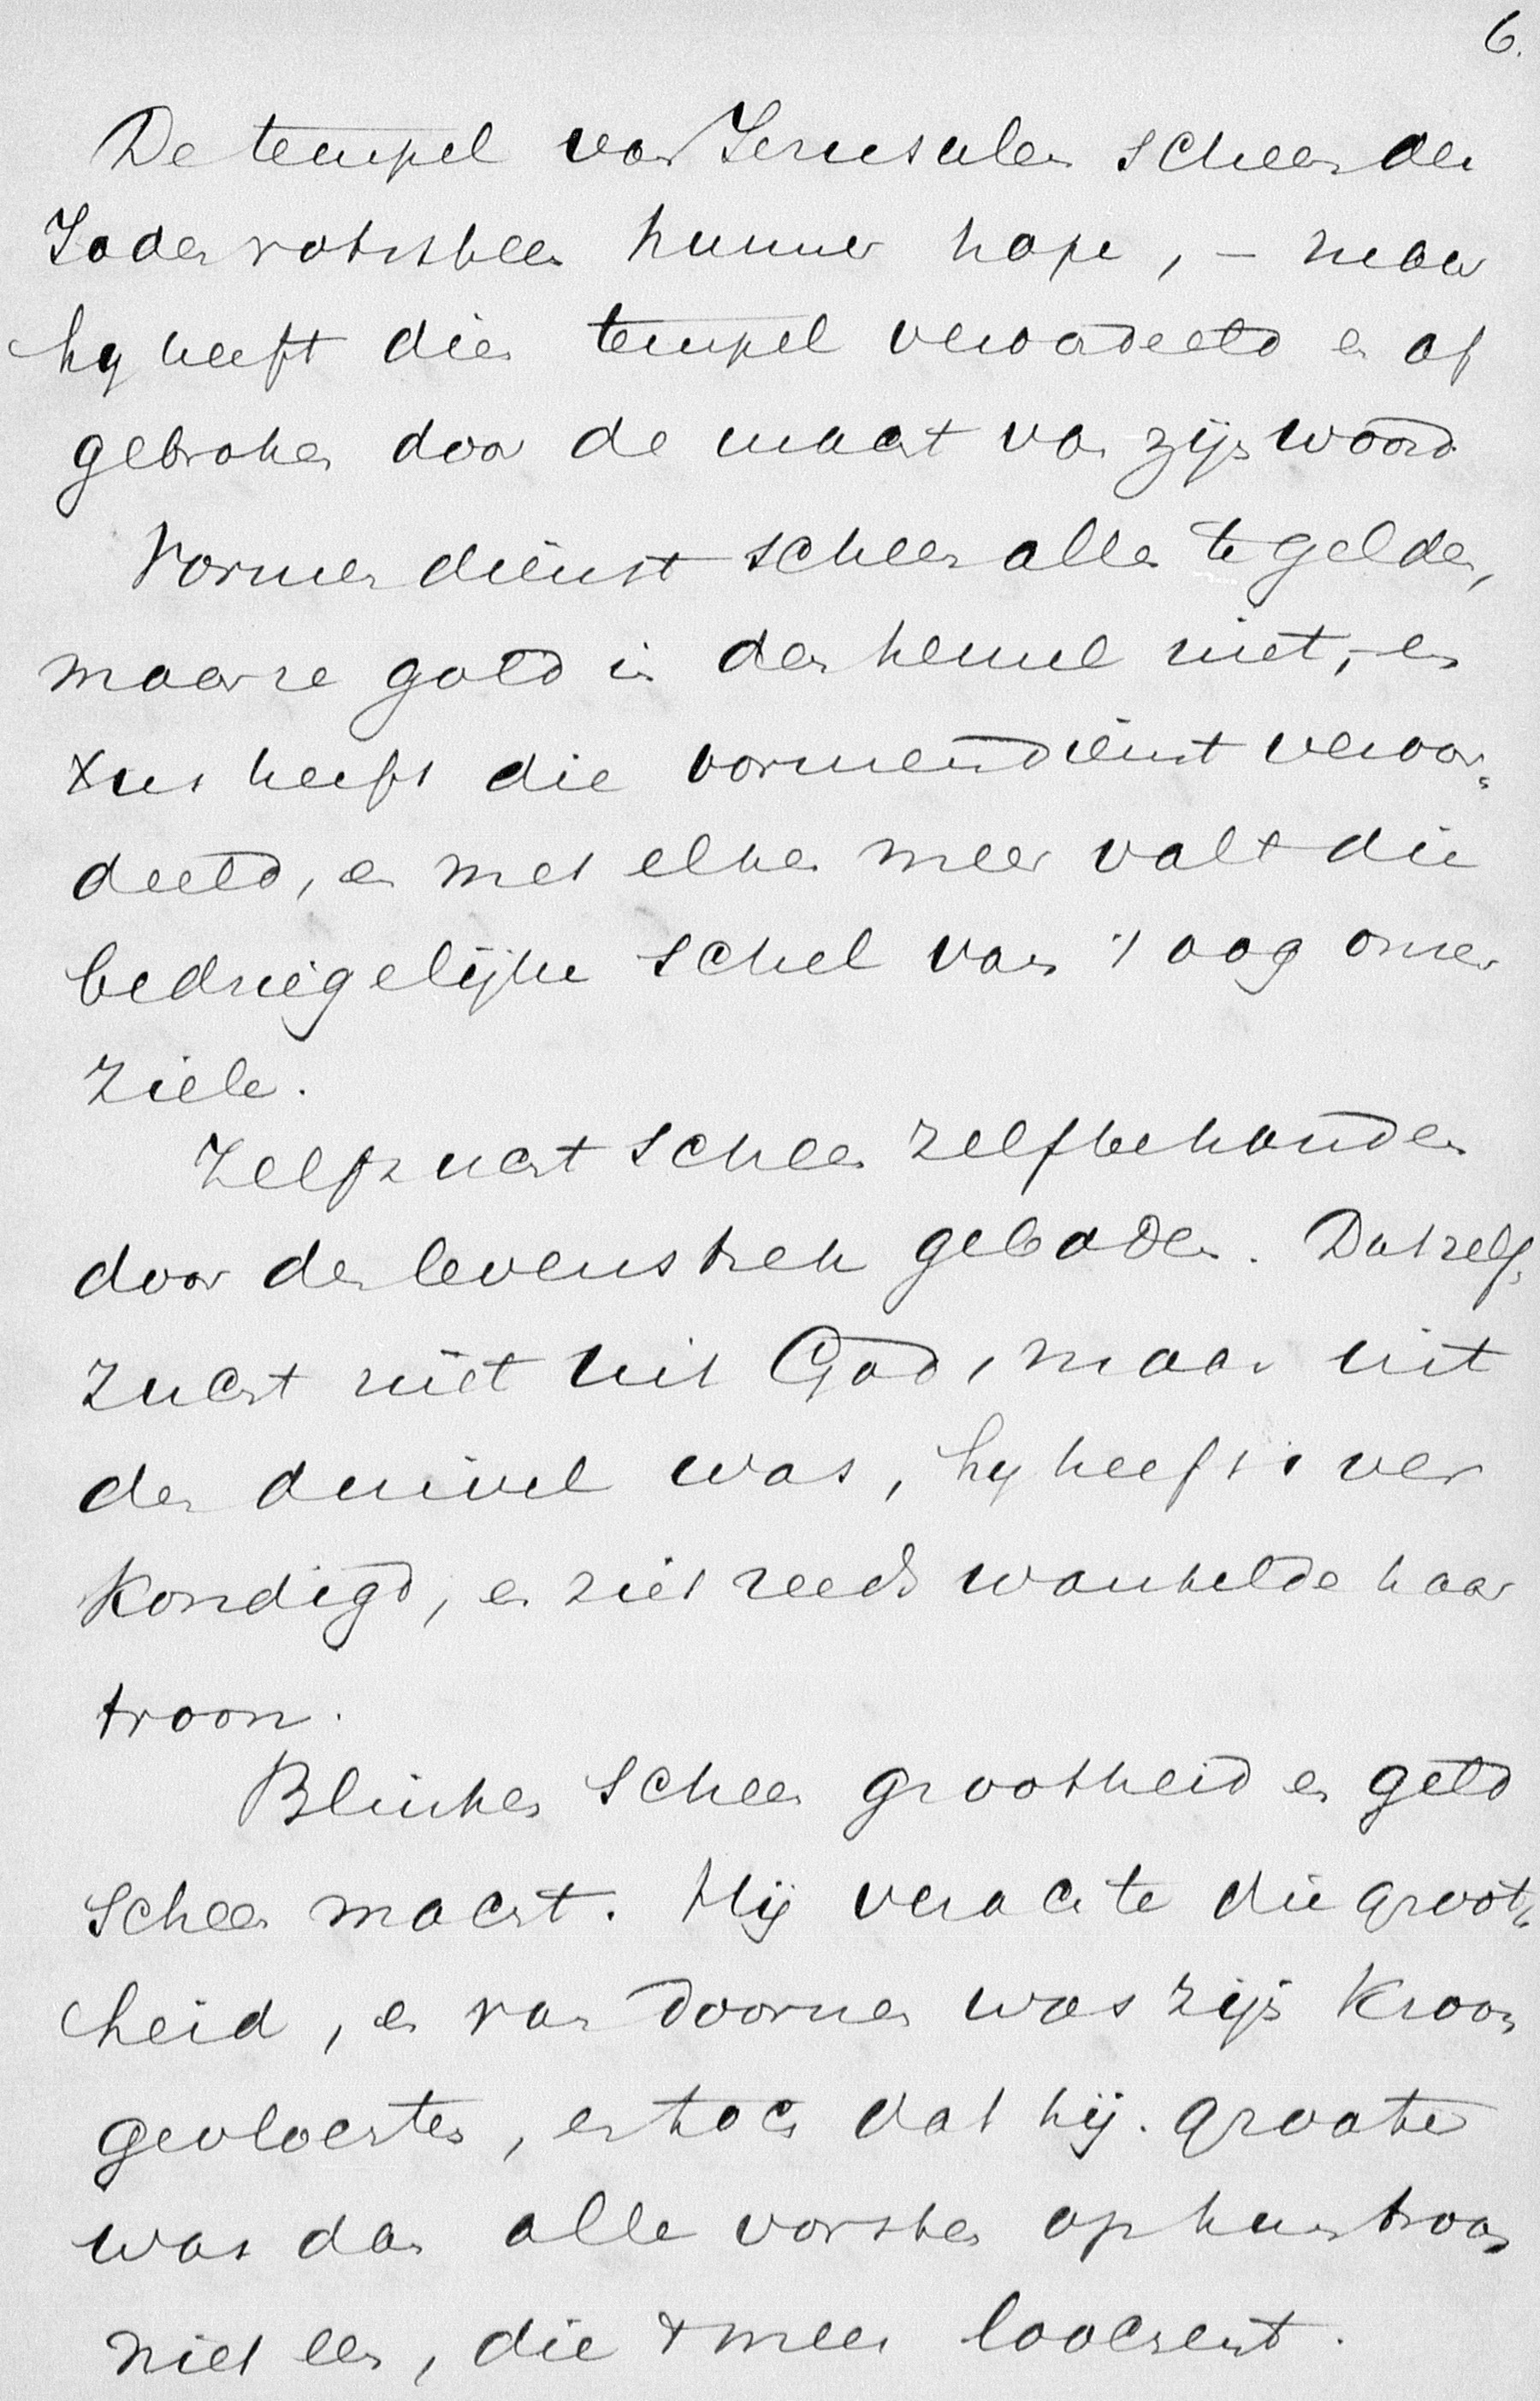 6.
De tempel van Jerusalem scheen den
Joden rotssteen hunner hope, – maar
hy heeft dien tempel veroordeeld en af
gebroken door de macht van zijn woord
Vormendienst scheen allen te gelden,
maar ze gold in den hemel niet, – en
Xus heeft die vormendienst veroor„
deeld, en met elken meer valt die
bedriegelijke schel van 't oog onzer
ziele.
Zelfzucht scheen zelfbehouden
door den levenstrek geboden. Dat zelf„
zucht niet uit God, maar uit
den duivel was, hy heeft 't ver
kondigd, en ziet reeds wankelde haar
troon.
Blinken scheen grootheid en geld
scheen macht. Hij verachtte die groot„
heid, en van doornen was zijn kroon
gevlochten, en toch dat hij grooter
was dan alle vorsten op hun troon
niet een, die 't meer loochent.